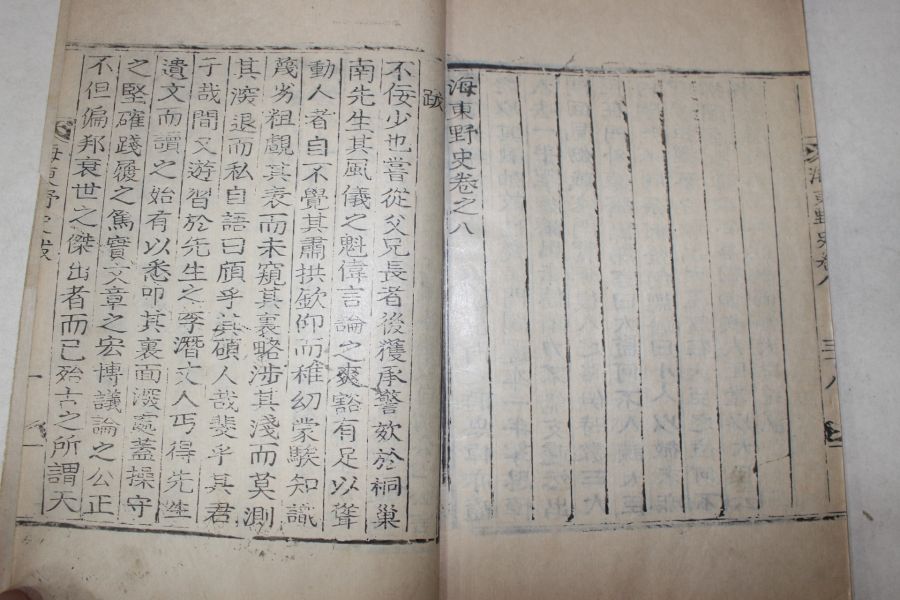 海東野史卷之八
跋
不佞少也嘗從父兄長者後獲承警欬於桐巢
南先生其風儀之魁偉言論之爽豁有足以聳
動人者自不覺其肅拱欽仰而稚幼蒙騃知識
蔑劣粗覷其表而未窺其裏略涉其淺而莫測
其深退而私自語曰頎乎其碩人哉斐乎其君
子哉間又遊習於先生之季潛文人丐得先生
遺文而讀之始有以悉叩其裏面深處蓋操守
之堅確踐履之篤實文章之宏博議論之公正
不但偏邦衰世之傑出者而已殆古之所謂天